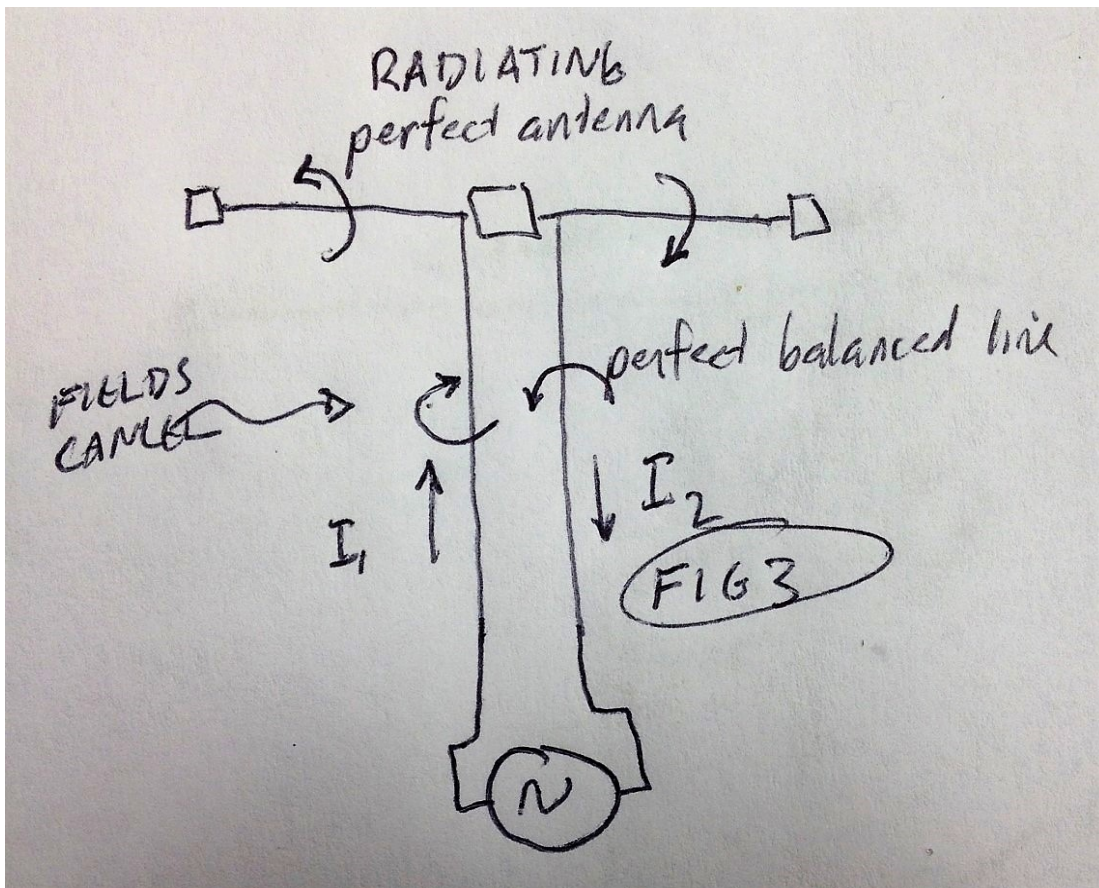 RADIATING
perfect antenna
perfect balanced line
FIELDS
CANCEL
I₁
I₂
FIG 3